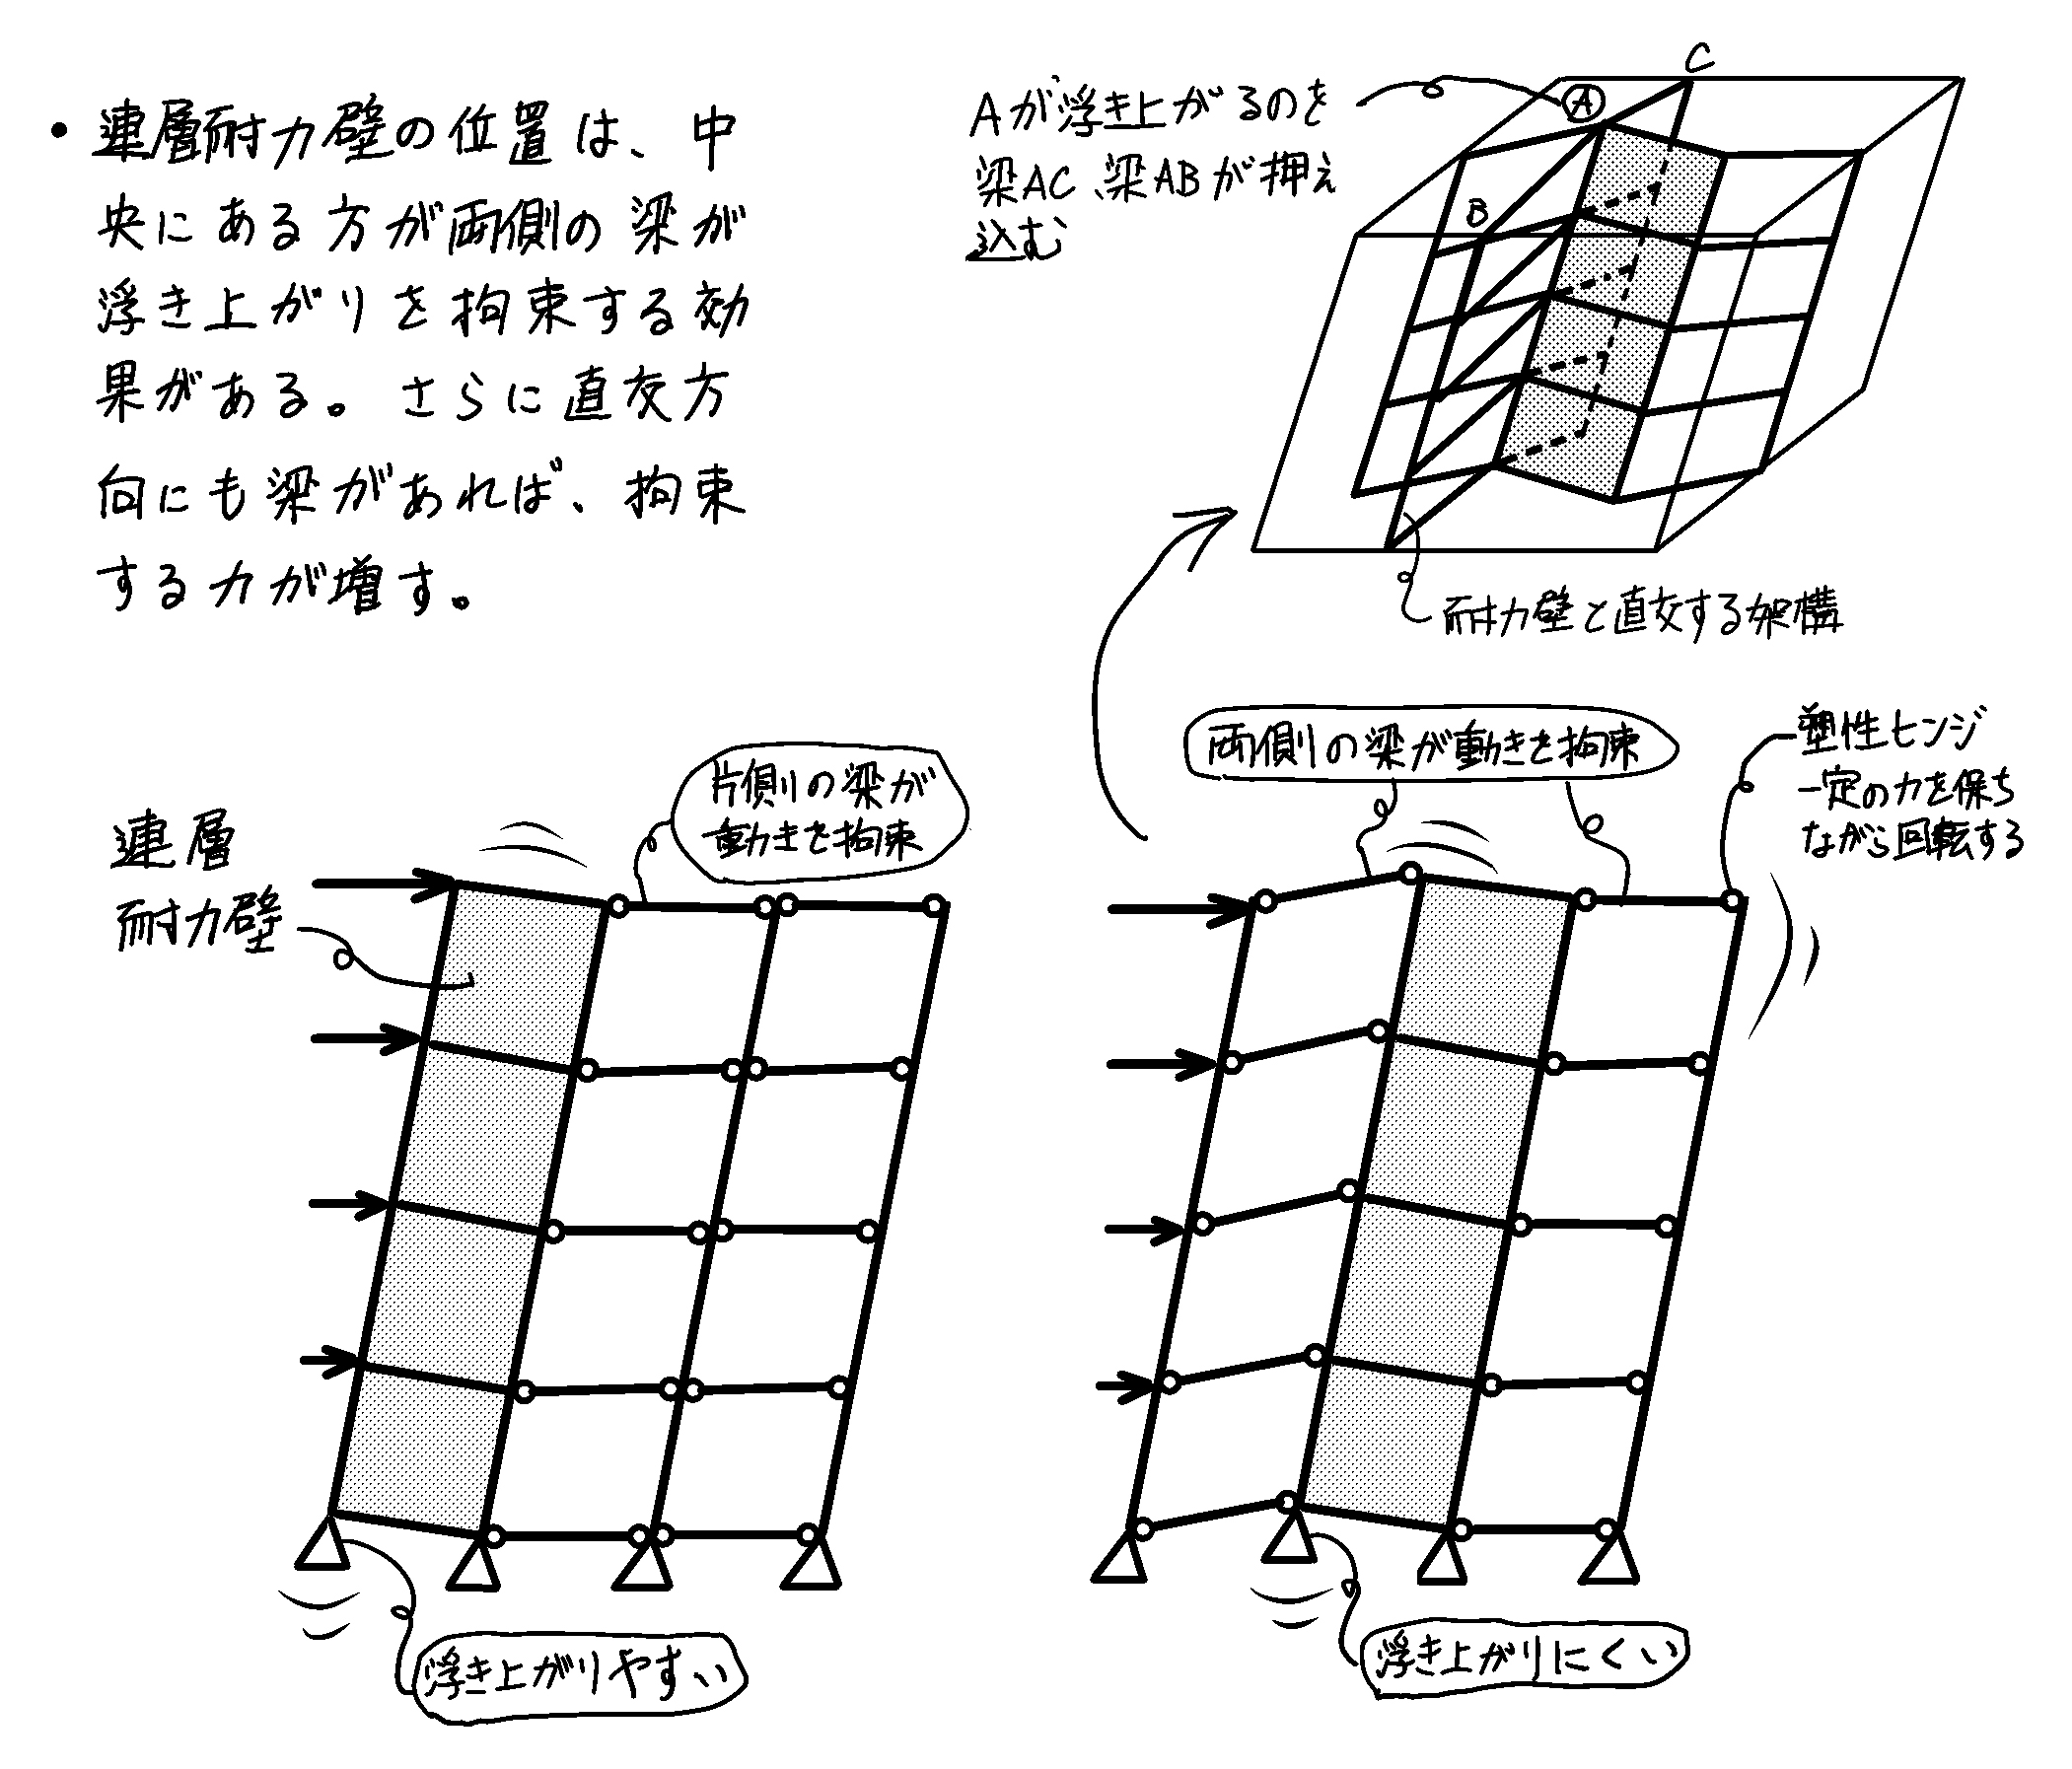 ・連層耐力壁の位置は、中
央にある方が両側の梁が
浮き上がりを拘束する効
果がある。さらに直交方
向にも梁があれば、拘束
する力が増す。
Aが浮き上がるのを
梁AC、梁ABが押え
込む
C
A
B
耐力壁と直交する架構
連層
耐力壁
片側の梁が
動きを拘束
浮き上がりやすい
両側の梁が動きを拘束
塑性ヒンジ
一定の力を保ち
ながら回転する
浮き上がりにくい